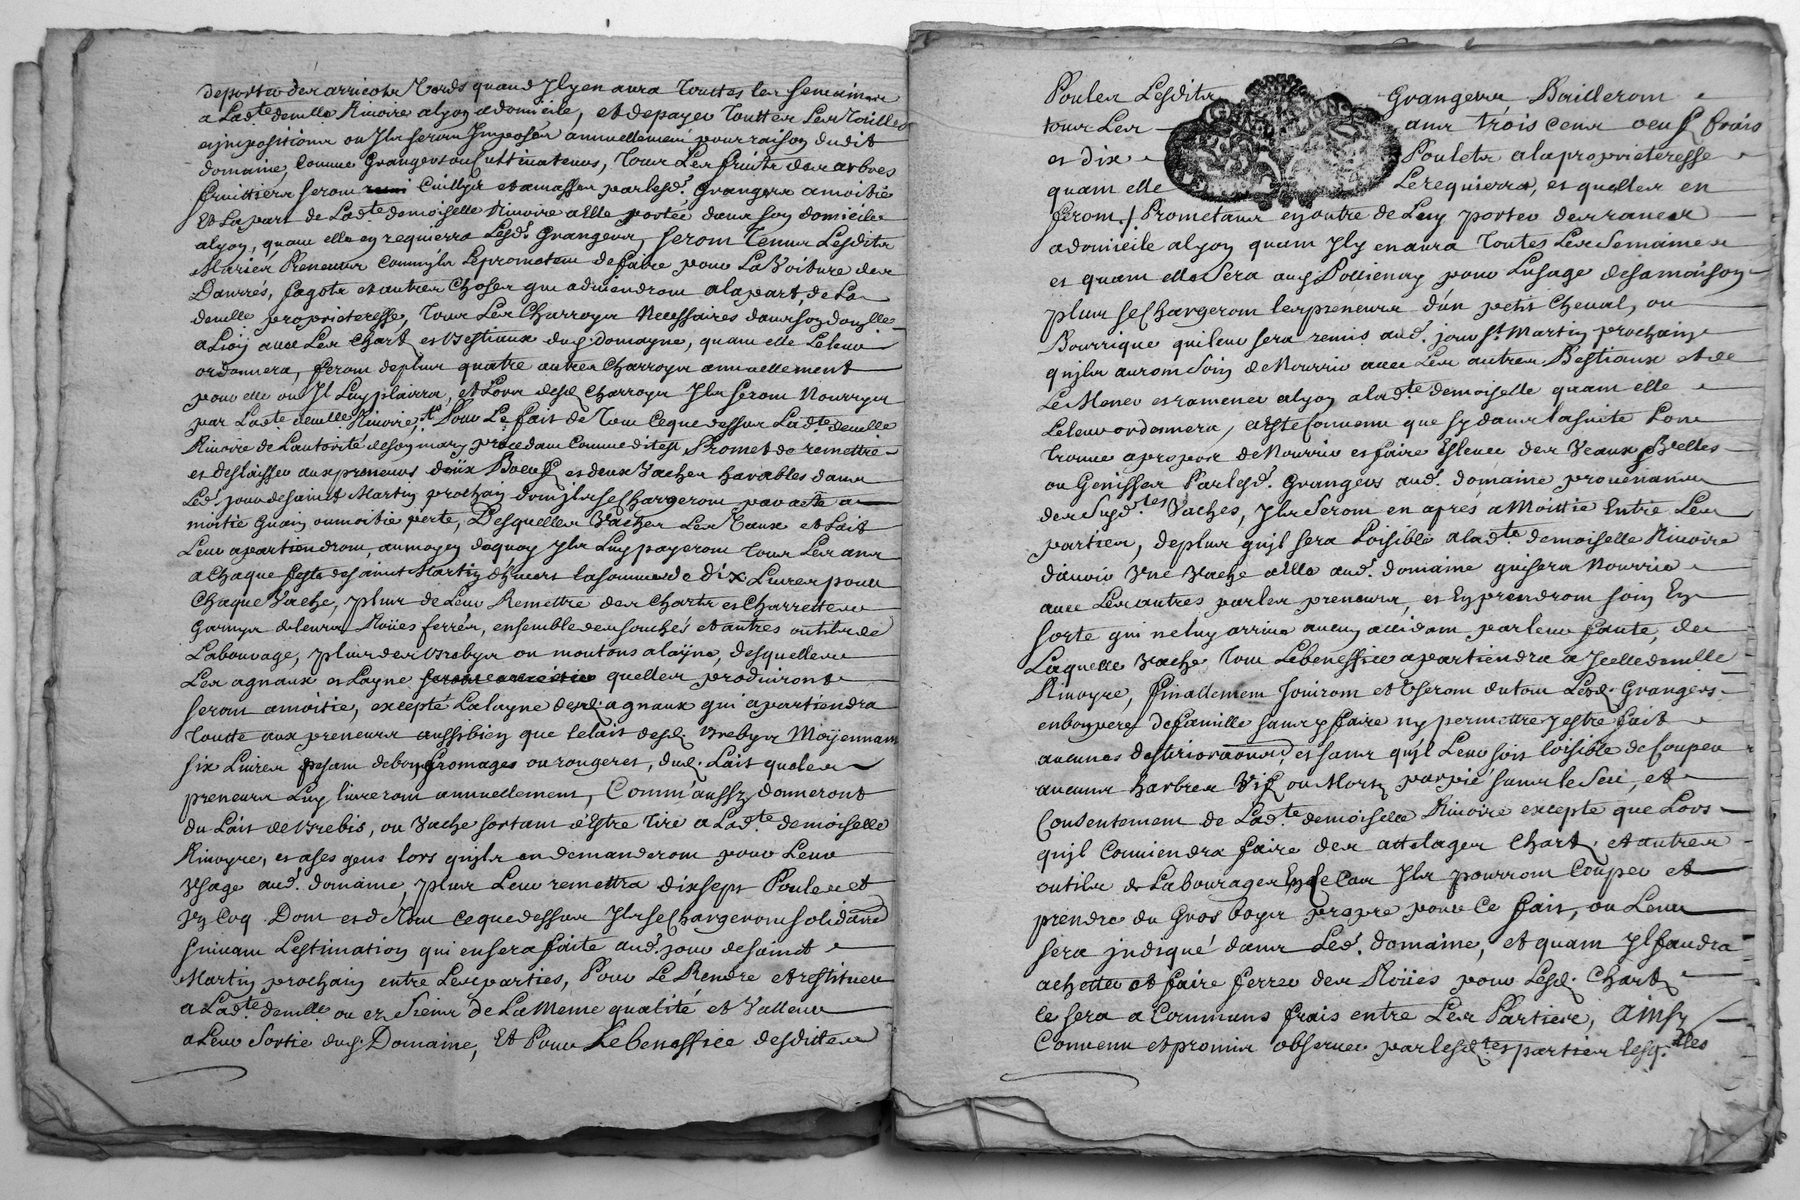 deporter des arricots Verds quand Jl y en aura Touttes les semaines
a Lad.te dem.lle Rivoire a lyon a domicile, et de payer Touttes Les Tailles
et jmpositions ou Jls seront Jmposés annuellement pour raison dudit
domaine, comme Grangers ou Cultivateurs, Tous Les fruits des arbres
fruittiers seront Cuillys et amassés par lesd. Grangers a moitié
Et La part de Lad.te demoiselle Rivoire a Elle portée dans son domicile
a lyon, quand elle en requierra Lesd. Grangers, seront Tenus Lesdits
Mariés Preneurs comm'jls Le promettent de faire pour La Voiture des
Danrés, fagots et autres choses qui adviendront a la part, de La
dem.lle proprieteresse, Tous Les Charroys Necessaires dans son dom.lle
a Lion avec Les Chart et Bestiaux dud. domayne, quand elle Leleur
ordonnera, feront de plus quatre autres Charroys annuellement
pour elle ou Jl Luy plairra, et Lors desd. Charroys Jls seront Nourrys
par Lad.te dem.lle Rivoire, Pour Le fait de Tout ce que dessus Lad.te dem.lle
Rivoire de L'autorité de son mary procedant comme dit est Promet de remettre
et deslaisser aux preneurs deux Boeufs et deux Vaches havables dans
Led. jour de saint Martin prochain dont jls se Chargeront par acte a
moitié Guain ou moitié perte, Desquelles Vaches Les Veaux et Lait
Leur apartiendront, au moyen de quoy Jls Luy payeront Tous Les ans
a Chaque feste de saint Martin d'hivers la somme de dix Livres pour
Chaque Vache, plus de Leur Remettre des Charts et Charrettes
Garnys de leurs Roües ferrés, ensemble des souchés et autres outils de
Labourage, plus des Brebys ou moutons a layne, desquelles
Les agnaux et Layne quelles produiront
seront a moitié, excepté La layne desd. agnaux qui apartiendra
Toutte aux preneurs aussibien que le lait desd. Brebys Moyennant
six Livres pesant de bon fromages ou rougeret, dud. Lait que les
preneurs Luy livreront annuellement, Comm'aussy donneront
du Lait de Brebis, ou Vache sortant d'Estre Tiré a Lad.te demoiselle
Rivoyre, et a ses gens lors qu'jls en demanderont pour Leur
Usage aud. domaine, plus Leur remettra dixsept Poules et
Un Coq Dont et de Tout ce que dessus Jls se Chargeront solidaire
suivant L'estimation qui en sera faite aud. jour de saint
Martin prochain entre Les parties, Pour Le Rendre et restituer
a Lad.te dem.lle ou es siens de La Meme qualité et Valleur
a Leur Sortie dud. Domaine, Et Pour Le beneffice desdittes
Poules Lesdits Grangers Bailleront
tous Les ans trois cens oeufs frais
et dix Poulets a la proprieteresse
quant elle Le requierra, et quelles en
feront. / Prometans en outre de Luy porter des raves
a domicile a lyon quant Jl y en aura Toutes Les Semaines
et quant elle Sera aud. Pollienay pour Lusage de sa maison
plus se Chargeront les preneurs d'un petit Cheval, ou
Bourrique qui leur sera remis aud. jour St. Martin prochain
qu'jls auront Soin de Nourrir avec Les autres Bestiaux et de
Le Mener et ramener a lyon a lad.te demoiselle quant elle
Leleur ordonnera, a Esté Convenu que sy dans la suite L'on
Trouve a propos de Nourrir et faire Esleuer des Veaux Belles
ou Genisses Par lesd. Grangers aud. domaine provenants
des susd.tes Vaches, Jls Seront en après a Moittié Entre Les
parties, de plus qu'jl sera Loisible a lad.te demoiselle Rivoire
d'avoir Une Vache a Elle aud. domaine qui sera Nourrie
avec Les autres par les preneurs, et En prendront soin En
sorte qui ne luy arrive aucun accidant par leur faute, de
Laquelle Vache Tout Le beneffice apartiendra a Jcelle dem.lle
Rivoyre, finallement jouiront et Useront du tout Lesd. Grangers
en bon pere de famille sans y faire ny permettre y estre fait
aucunes desteriorations, et sans qu'jl Leur soit loisible de Couper
aucuns harbres Vif ou Mort par pié sans le Seu, et
Consentement de Lad.te demoiselle Rivoire excepté que Lors
qu'jl Conviendra faire des attelages Charts et autres
outils de Labourages Ende Cas Jls pourront Couper et
prendre du Gros boys propre pour Ce fait, ou Leur
sera jndiqué dans Led. domaine, et quant Jl faudra
achetter et faire ferrer des Roües pour Lesd. Charts
Ce sera a Communs frais entre Les Parties, ainsy
Convenu et promis observer par lesd.tes parties lesq.lles